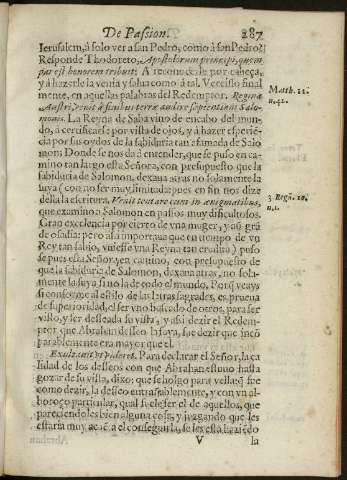 De Passion. 287
Ierusalem, à solo ver a san Pedro, como à san Pedro?
Responde Theodoreto, Apostolorum principi, quem
par est honorem tribuit; A reconocerle por cabeça,
y à hazerle la venia y salua como à tal. Verelislo final
mente, en aquellas palabras del Redemptor. Regina
Austri, venit à finibus terræ audire sapientiam Salo-
monis. La Reyna de Saba vino de encabo del mun-
do, à certificarse por vista de ojos, y à hazer esperié-
cia por sus oydos de la sabiduria tan afamada de Salo
mon; Donde se nos da à entender, que se puso en ca-
mino tan largo esta Señora, con presupuesto que la
sabiduria de Salomon, dexaua atras no solamente la
suya (con no ser muy limitada pues en fin nos dize
della la escritura. Venit tentare eum in ænigmatibus,
que examino a Salomon en passos muy dificultosos.
Gran excelencia por cierto de vna muger, y aũ grã
de osadia: pero assi importaua que en tiempo de vn
Rey tan sabio, vuiesse vna Reyna tan erudita) puso
se pues esta Señora en camino, con presupuesto de
que la sabiduria de Salomon, dexaua atras, no sola-
mente la suya si no la de todo el mundo. Porq̃ veays
si conforme al estilo de las letras sagradas, es prueua
de superioridad, el ser vno buscado de otros, para ser
visto, y ser desseada su vista, y assi dezir el Redem-
ptor, que Abraham desseo la suya, fue dezir que incõ
parablemente era mayor que el.
Exultauit vt videret. Para declarar el Señor, la ca
lidad de los desseos con que Abraham estuuo hasta
gozar de su vista, dixo: que se holgo para vella: q̃ fue
como dezir, la desseo entrañablemente, y con vn al-
boroço particular, qual suele ser el de aquellos, que
pareciendoles bien alguna cosa, y juzgando que les
estaria muy acuẽta el conseguirla, se les esta haziẽdo
V la
Matth. 12.
n. 42.
3. Regũ. 10.
n. 1.